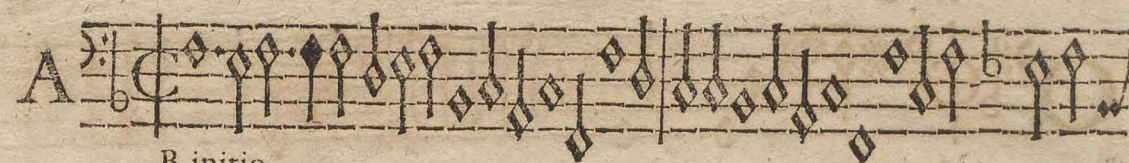 A
B initio